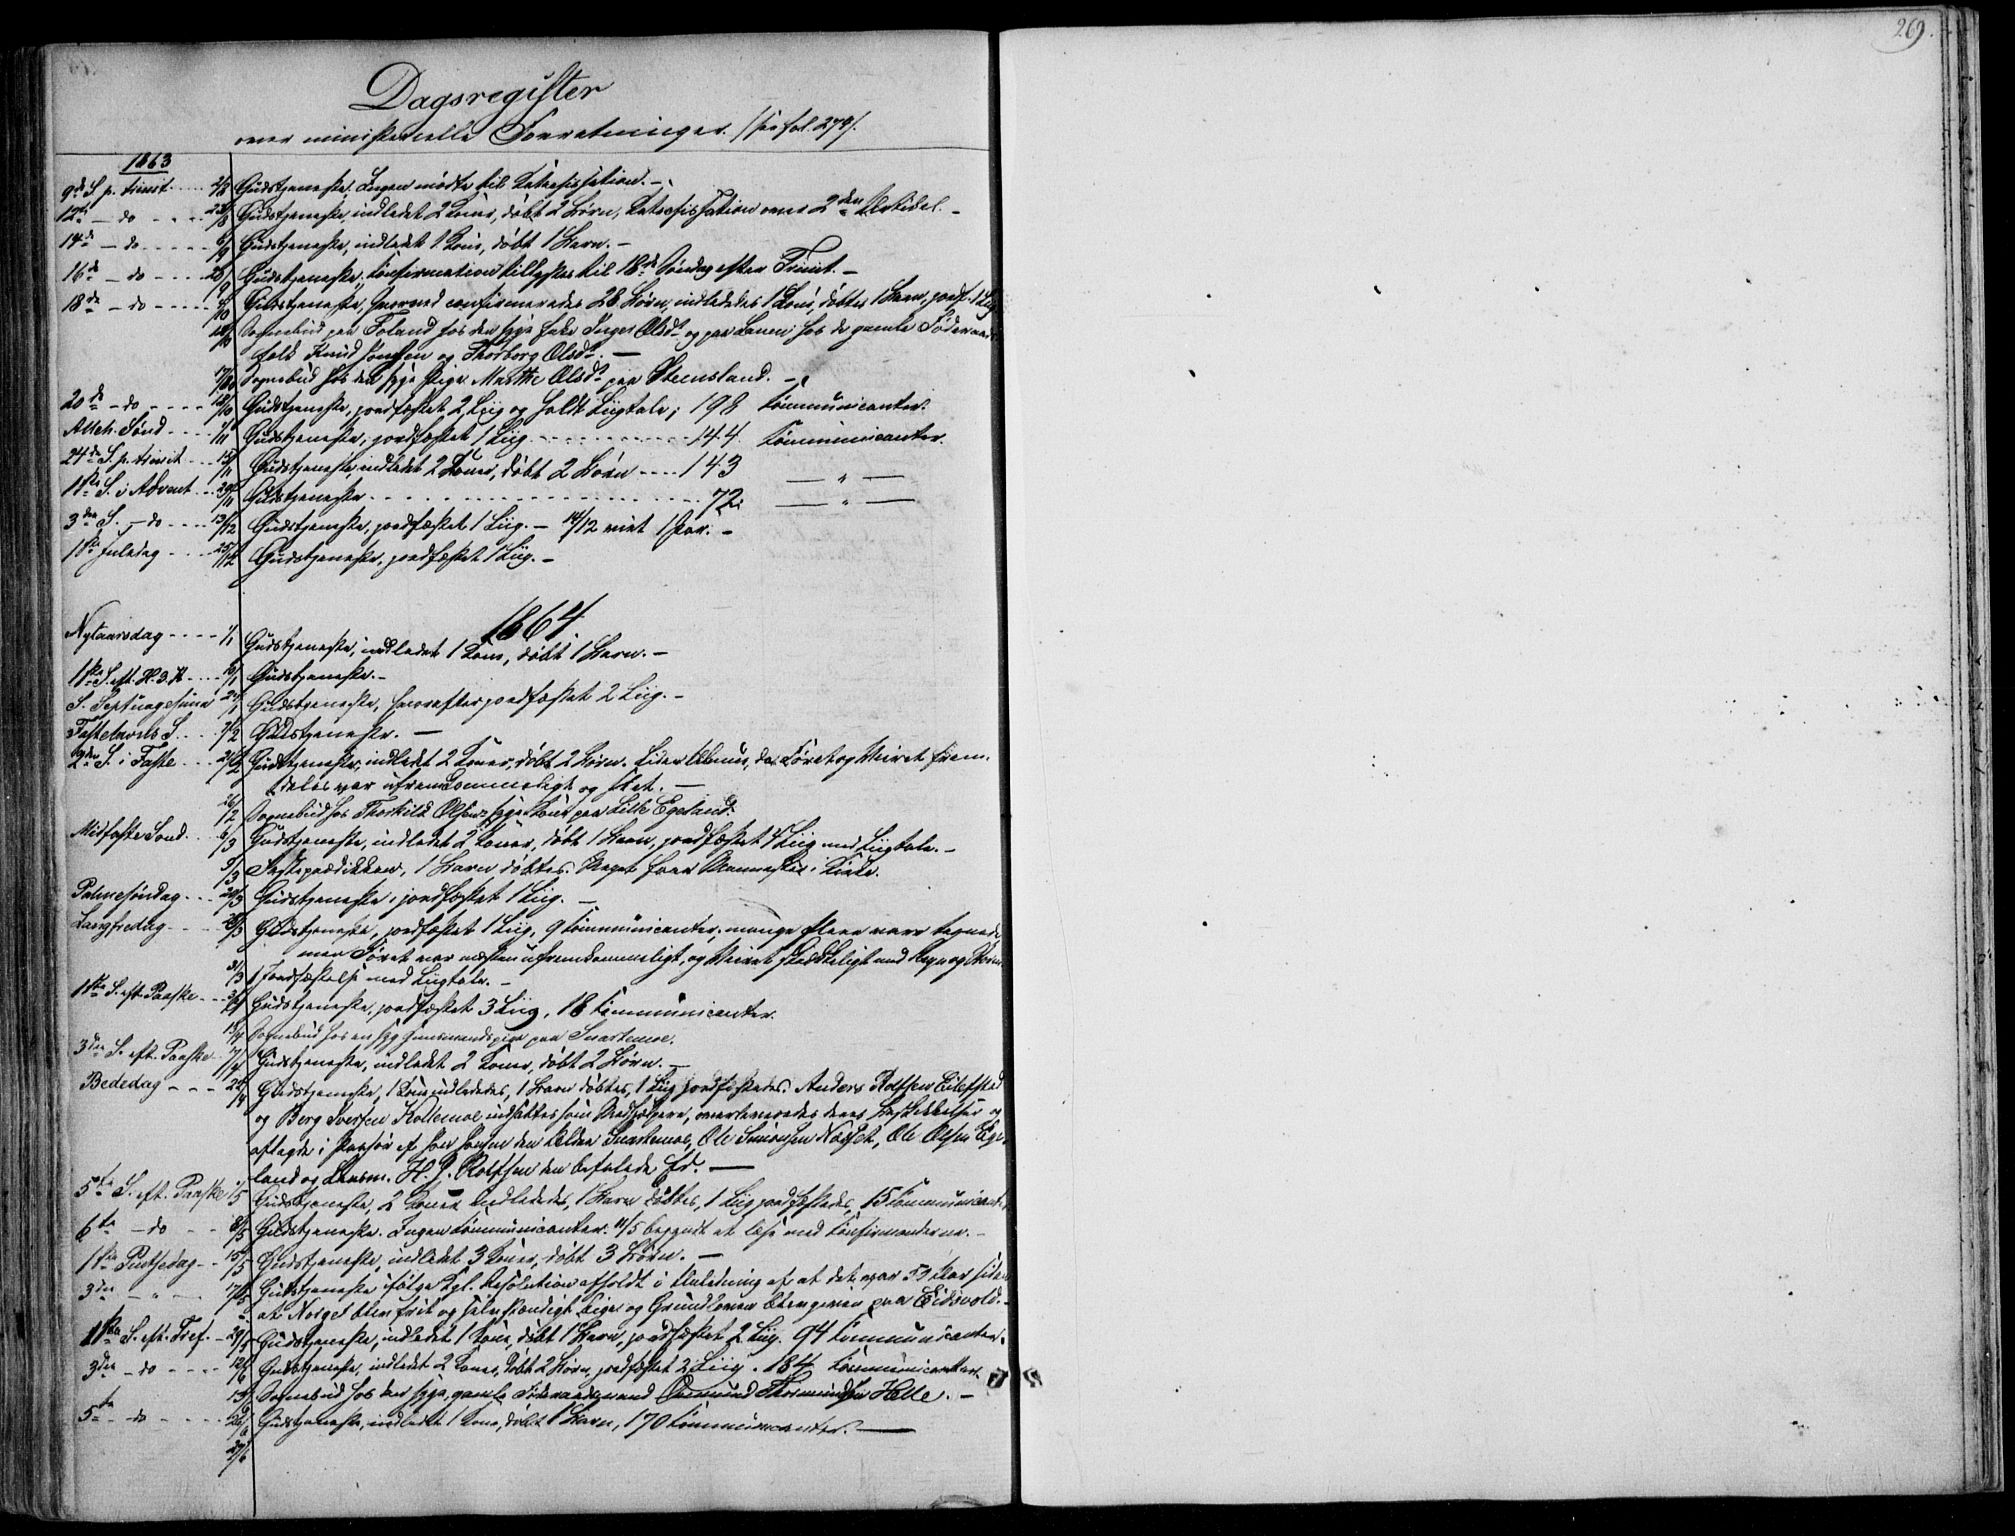 269.
Dagsregister
over ministerielle Forretninger. /see fol. 279/.
1863
9de S. p. trinit. 2/8 Gudstjeneste. Ingen mødte til Katechisation. –
12te – do 23/8 Gudstjeneste, indledet 2 Koner, døbt 2 Børn, Katechisation over 2den Artikel. –
14de – do 6/9 Gudstjeneste, indledet 1 Kone, døbt 1 Barn. –
16de – do 20/9 Gudstjeneste, Confirmation tillystes til 18de Søndag efter Trinit. –
18de – do 4/10 Gudstjeneste, hvorved confirmeredes 28 Børn, indlededes 1 Kone, døbtes 1 Barn, jordf. 1 Liig
Sognebud paa Foland hos den syge Inger Olsd. og paa hos de gamle Føderaads
folk Knud Jonsen og Thorborg Olsd. –
17/10 Sognebud hos den syge Pige Marthe Olsd. paa Steensland. –
20de – do 18/10 Gudstjeneste, jordfæstet 2 Liig og holdt Liigtale; 198 Communicanter.
Alleh. Sønd. 1/11 Gudstjeneste, jordfæstet 1 Liig 144 Communicanter.
24de S. p. trinit. 15/11 Gudstjeneste, indledet 2 Koner, døbt 2 Børn 143 — " —
1ste S. i Advent 29/11 Gudstjeneste 72 — " —
3die S. – do 13/12 Gudstjeneste, jordfæstet 1 Liig. – 14/12 viet 1 Par. –
1ste Juledag 25/12 Gudstjeneste, jordfæstet 1 Liig. –
1864
Nytaarsdag 1/1 Gudstjeneste, indledet 1 Kone, døbt 1 Barn. –
1ste S. eft. H. 3 K. 10/1 Gudstjeneste. –
S. Septuagesima 24/1 Gudstjeneste, hvorefter jordfæstet 2 Liig. –
Fastelavns S. 7/2 Gudstjeneste. —
2den S. i Faste 21/2 Gudstjeneste, indledet 2 Koner, døbt 2 Børn. da Føret og Veiret frem-
deles var ufremkommeligt og slet. —
26/2 Sognebud hos Thorkild Olsens syge Kone paa Lille Egeland.
Midfaste Sønd. 6/3 Gudstjeneste, indledet 2 Koner, døbt 1 Barn, jordfæstet 4 Liig med Liigtale. –
9/3 Fasteprædikken, 1 Barn døbtes. Meget faae Mennesker i Kirke.
Palmesøndag 20/3 Gudstjeneste, jordfæstet 1 Liig. —
Langfredag 25/3 Gudstjeneste, jordfæstet 1 Liig, 9 Communicanter, mange flere vare tegnede
men Føret var næsten ufremkommeligt, og Veiret skrækkeligt med Regn og Storm.
31/3 Jordfæstelse med Liigtale. –
1ste S. eft. Paaske 3/4 Gudstjeneste, jordfæstet 3 Liig, 18 Communicanter.
Sognebud hos en syg Huusmandspige paa Snartemoe.
3die S. eft. Paaske 17/4 Gudstjeneste, indledet 2 Koner, døbt 2 Børn. —
Bededag 22/4 Gudstjeneste, 1 Kone indlededes, 1 Barn døbtes, 1 Liig jordfæstedes. Anders Rolfsen Eilefstad
og Berg Syvertsen Kollemoe indsattes som Medhjelpere, overleveredes deres Beskikkelser og
aflagde i Paahør af den ældre Snartemoe, Ole Simonsen Næset, Ole Olsen Ege-
land og Lensm. H. J. Rolfsen den befalede Ed. —
5te S. eft. Paaske 1/5 Gudstjeneste, 2 Koner indlededes, 1 Barn døbtes, 1 Liig jordfæstedes, 15 Communicant.
6te – do 8/5 Gudstjeneste. Ingen Communicanter. 11/5 begyndt at læse med Confirmanderne. –
1ste Pintsedag 15/5 Gudstjeneste, indledet 3 Koner, døbt 3 Børn. —
3die – " – 17/5 Gudstjeneste ifølge Kgl. Resolution afholdt i Anledning af at det var 50 Aar siden
at Norge blev frit og selvstændigt Rige og Grundloven blev given paa Eidsvold. –
1ste S. eft. Tref. 29/5 Gudstjeneste, indledet 1 Kone, døbt 1 Barn, jordfæstet 2 Liig. 94 Communicanter.
3die – do 12/6 Gudstjeneste, indledet 2 Koner, døbt 2 Børn, jordfæstet 2 Liig. 184 Communicanter.
Sognebud hos den syge, gamle Føderaadsmand Osmund Thormundsen Helle. –
5te – do 26/6 Gudstjeneste, indledet 1 Kone, døbt 1 Barn, 170 Communicanter. —
29/6